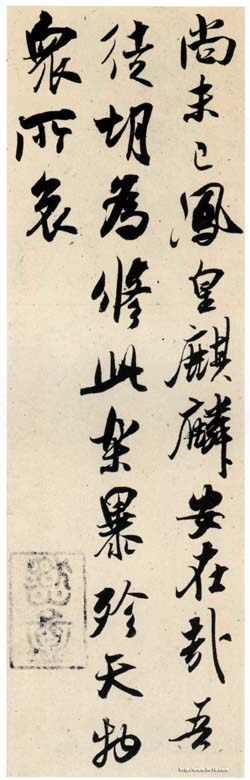 尚未已鳳皇麒麟安在哉吾
徒胡為縱此樂暴殄天物
衆所哀